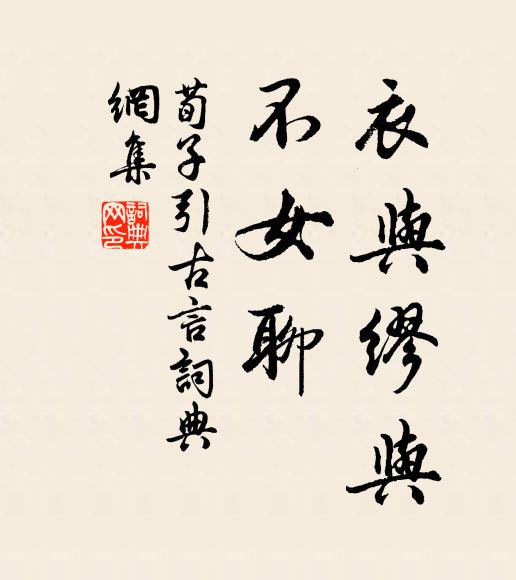 衣與繆與
不女聊
荀子引古言詞典
網集
詞典網印